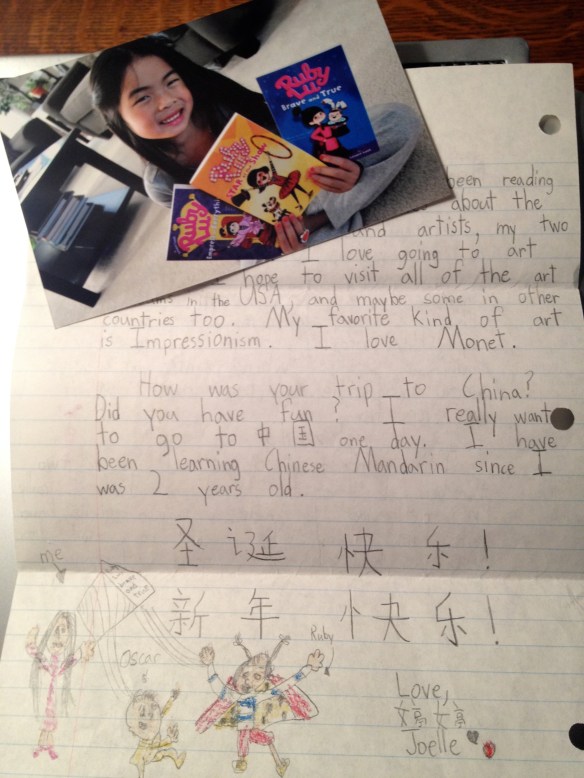 Ruby Lu
Brave and True
Ruby Lu
Ruby Lu
been reading
about the
and artists, my two
I love going to art
hope to visit all of the art
in the USA, and maybe some in other
countries too. My favorite kind of art
is Impressionism. I love Monet.
How was your trip to China?
Did you have fun? I really want
to go to 中国 one day. I have
been learning Chinese Mandarin since I
was 2 years old.
圣诞快乐!
新年快乐!
me
brave
and
True
Oscar
Ruby
Love,
Joelle